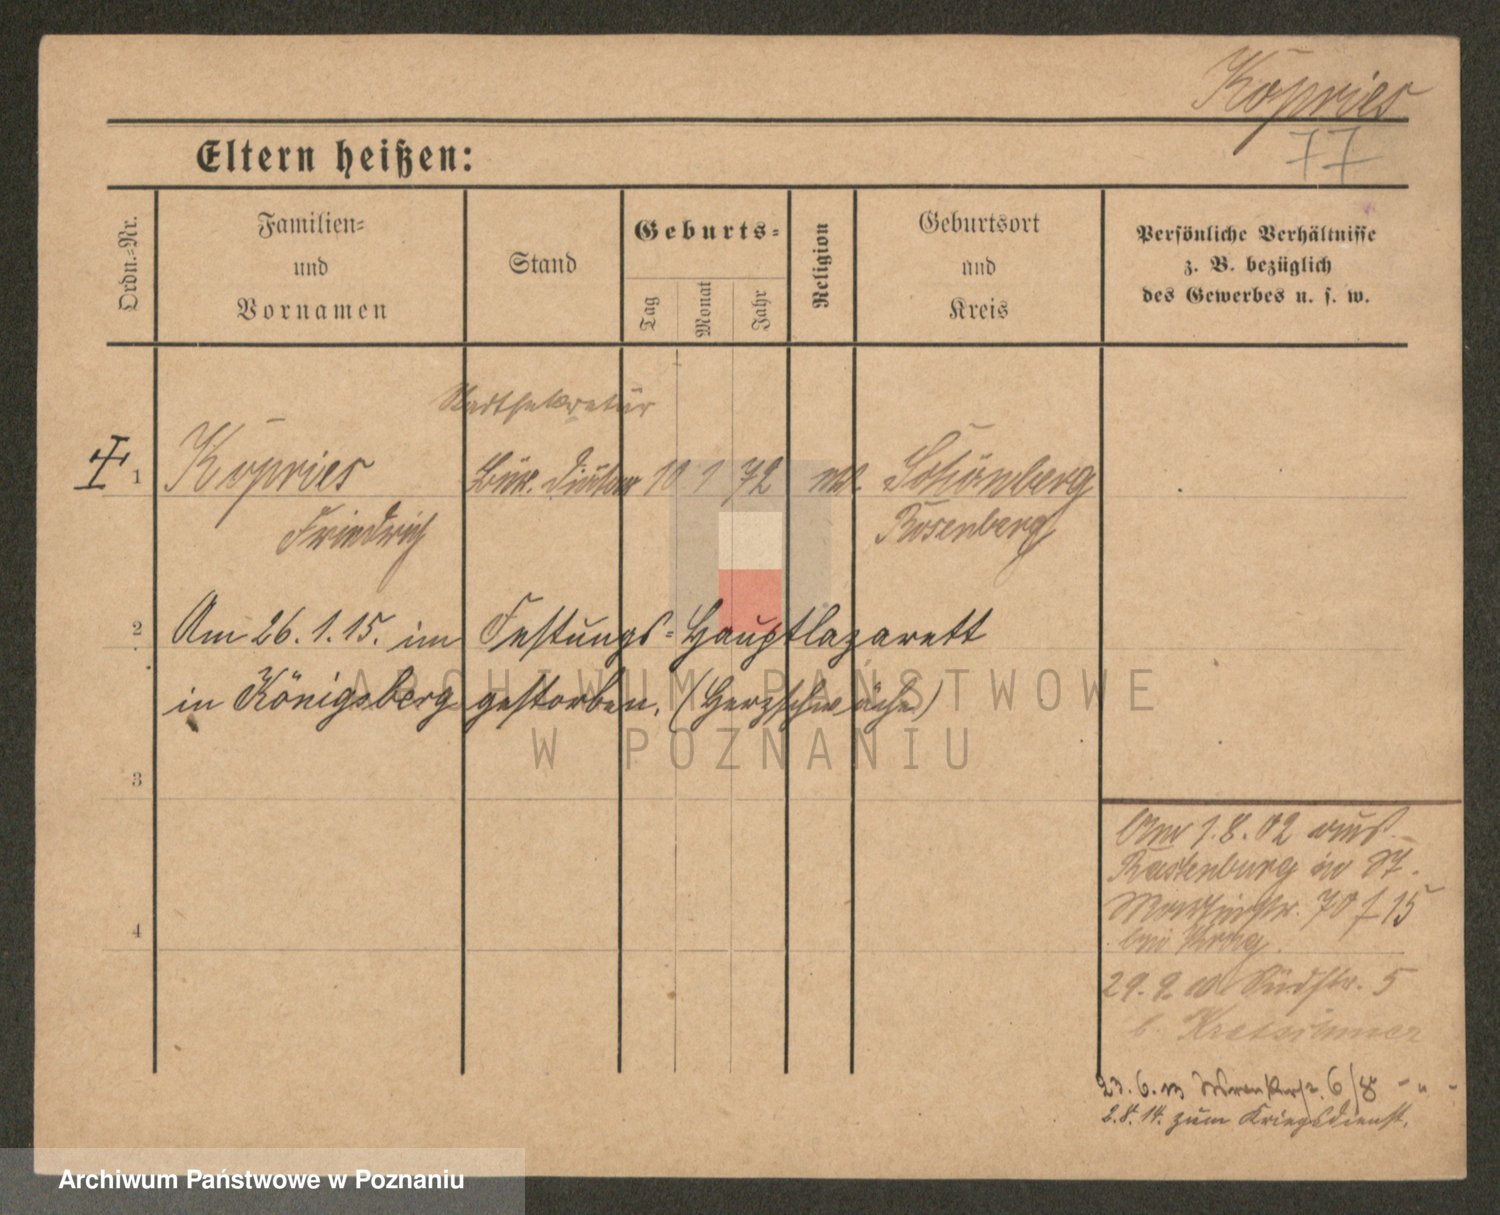 Kopries
77
Eltern heißen:
Ordn.-Nr.
Familien-
und
Vornamen
Stand
Geburts-
Tag
Monat
Jahr
Religion
Geburtsort
und
Kreis
Persönliche Verhältnisse
z. B. bezüglich
des Gewerbes u. s. w.
Stadtsekretär
1 Kopries Bür. Diätar 10 1 72 Schönberg
Friedrich Rosenberg
2 Am 26.1.15. im Festungs-Hauptlazarett
in Königsberg gestorben. (Herzschwäche)
3
4
Am 1.8.02 aus
Rastenburg in St.
70 f 15
bei
29.9. Südstr. 5
b. Kretschmer
23.6. 6/8 - " -
2.8.14. zum Kriegsdienst.
ARCHIWUM PAŃSTWOWE
W POZNANIU
Archiwum Państwowe w Poznaniu